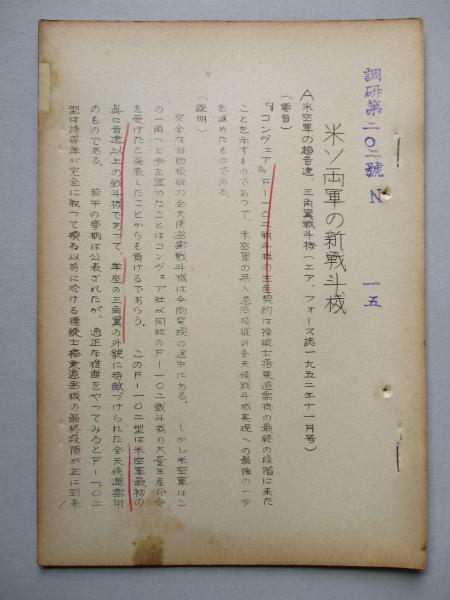 調研第二〇二號 N 一五
米ソ両軍の新戦斗機
A 米空軍の超音速 三角翼戦斗機(エア、フォース誌一九五二年十一月号)
(要旨)
『コンヴェア』F-一〇二戦斗機の生産契約は操縦士搭乗遊撃機の最終の段階に来た
ことを示すものであって、米空軍の無人遠隔操縦の全天候戦斗機実現への最後の一歩
を進めたものである。
(説明)
完全な自動操縦の全天候遊撃戦斗機は今尚実現の途中にある。 しかし米空軍はこ
の一角へと歩を進めたことはコンヴェア社が同社のF-一〇二戦斗機の大量生産命令
を受けたと発表したことからも肯けるであらう。 このF-一〇二型は米空軍最初の
真に音速以上の戦斗機であって、単座の三角翼の外貌に特徴づけられた全天候遊撃用
のものである。 若干の事柄は公表されたが、適正な描画をやってみるとF-一〇二
型は誘導弾が完全に取って換る以前に於ける操縦士搭乗遊撃機の最終段階が正に到来